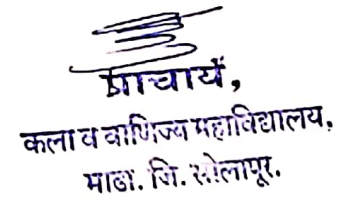 प्राचार्य,
कला व वाणिज्य महाविद्यालय,
माढा. जि. सोलापूर.